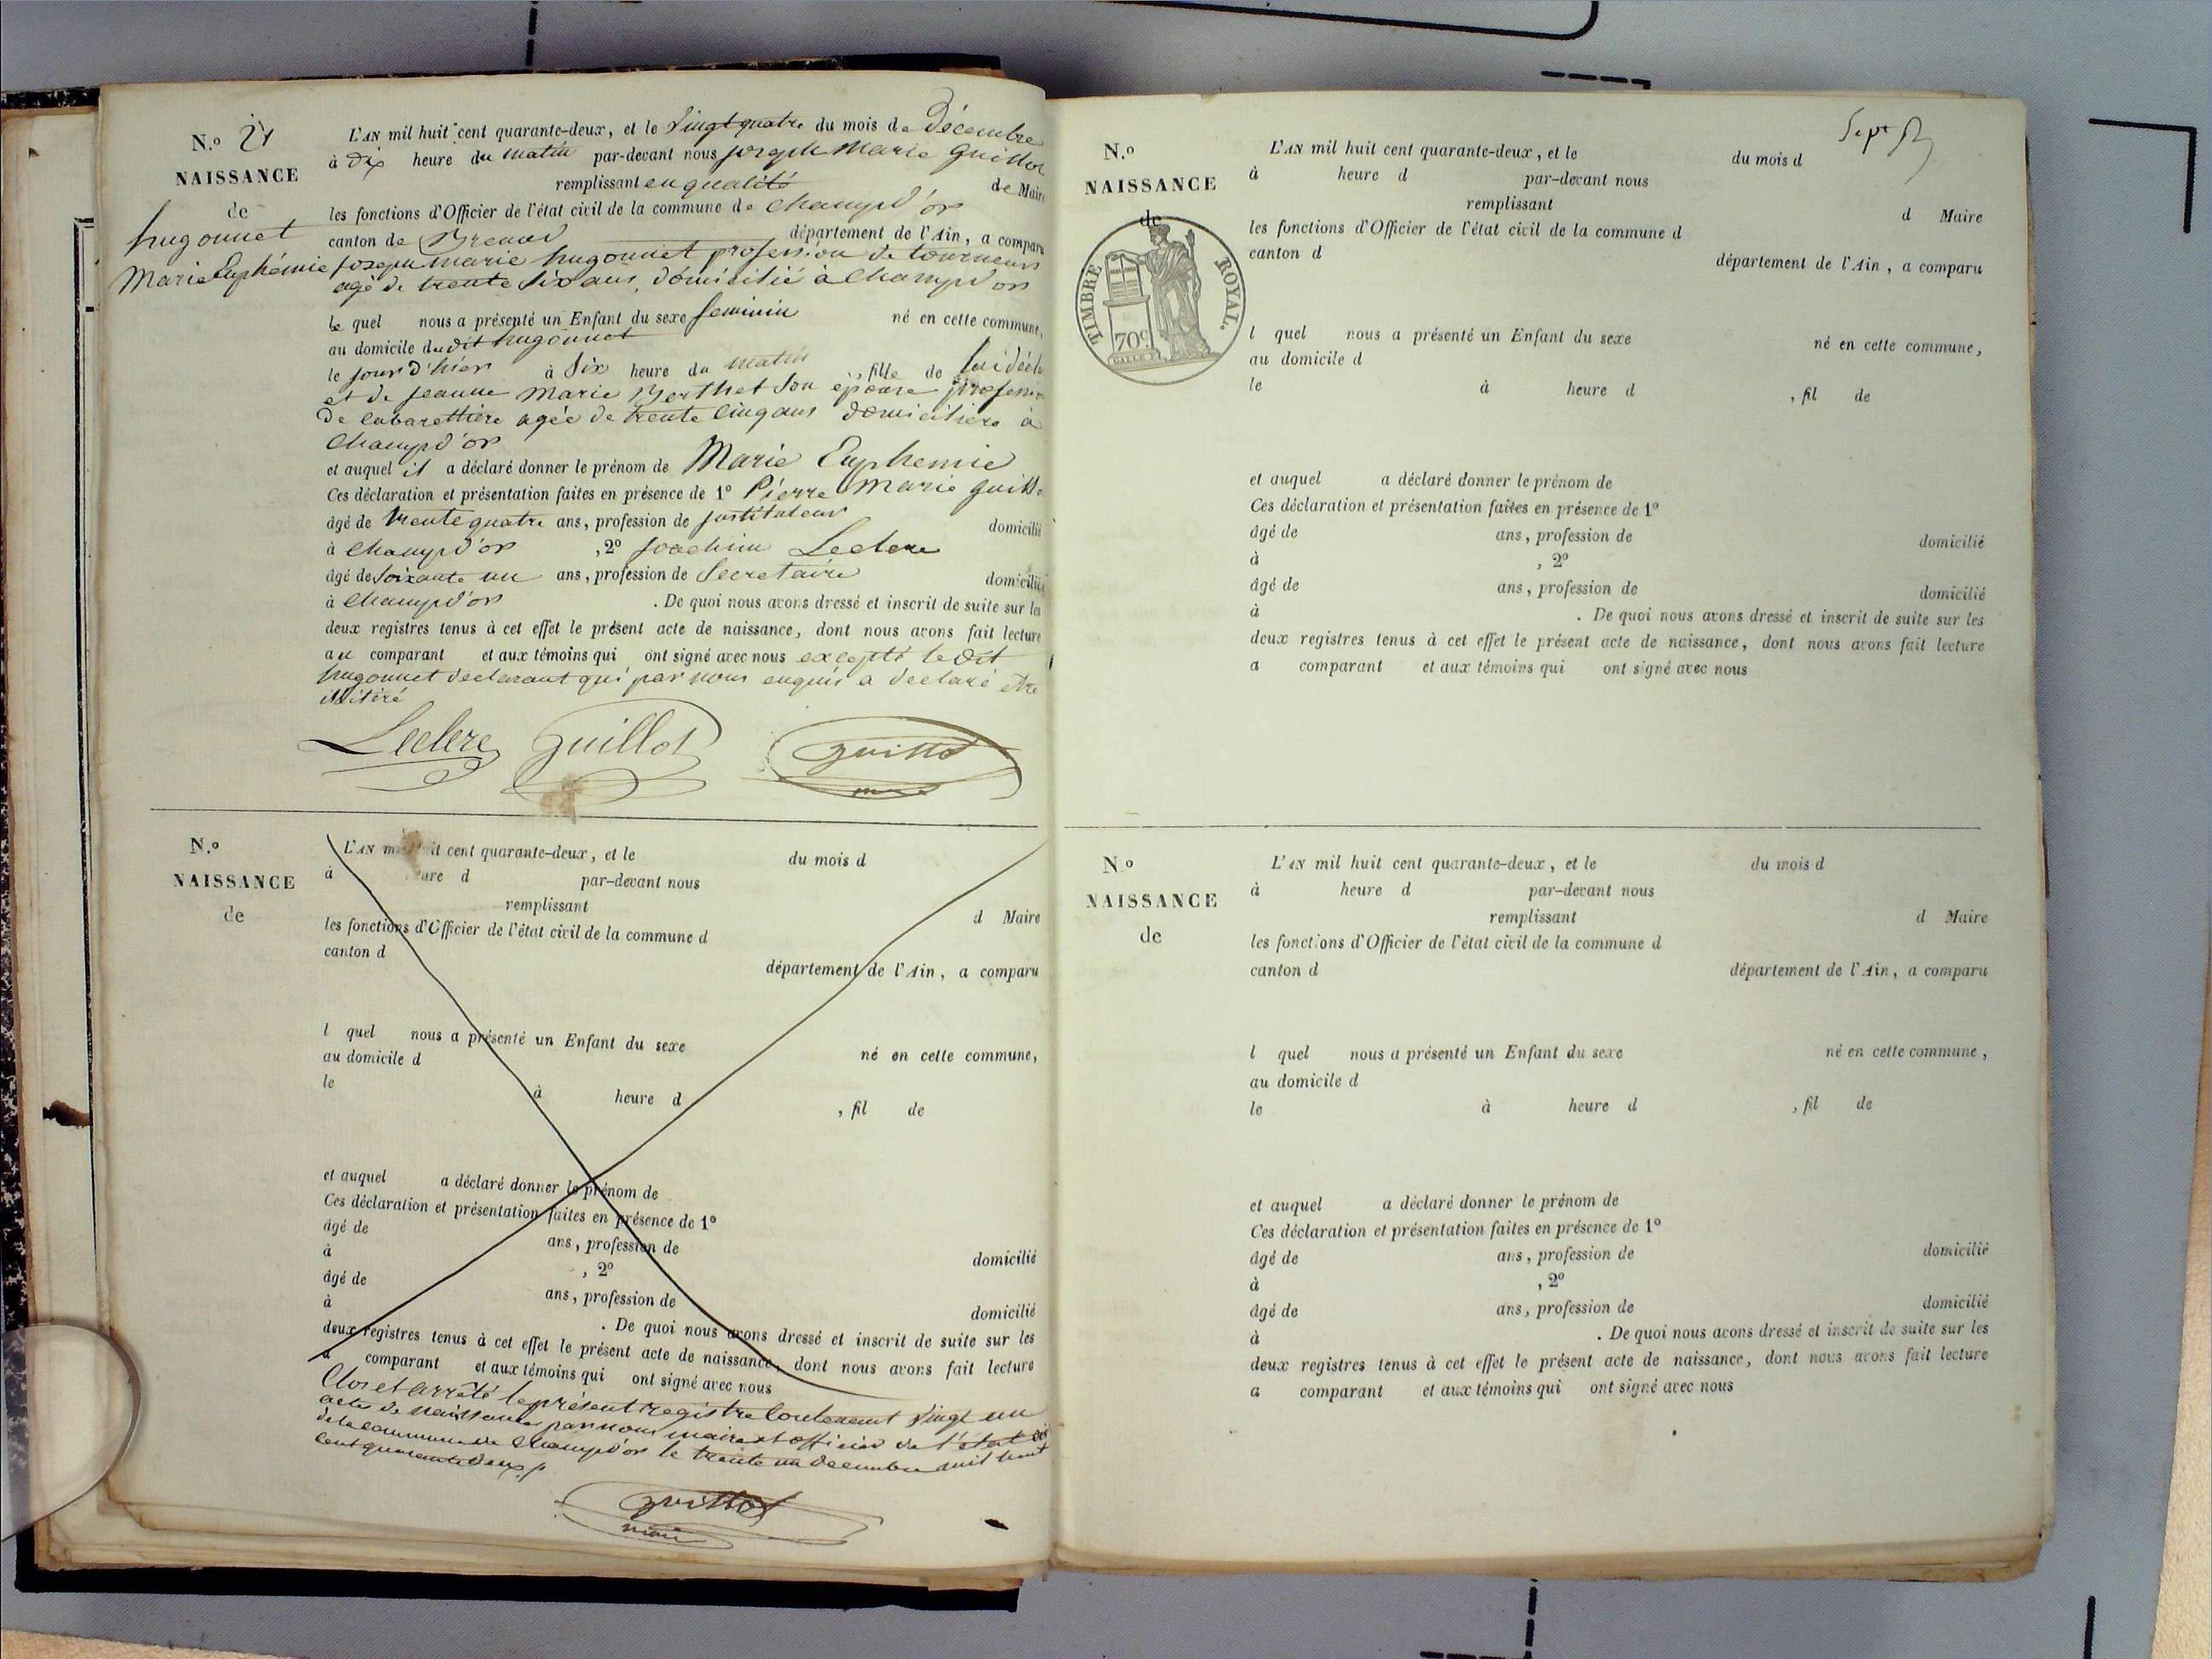 N.º 21
NAISSANCE
de
hugonnet
Marie Euphémie
L'AN mil huit cent quarante-deux, et le Vingt quatre du mois de Décembre
à Dix heure du matin par-devant nous joseph Marie Guillot
remplissant en qualité de Maire
les fonctions d'Officier de l'état civil de la commune de Champd'or
canton de Brenod département de l'Ain, a comparu
joseph marie hugonnet profession de tourneurs
agé de trente Six ans, domicilié à Champd'or
le quel nous a présenté un Enfant du sexe feminin né en cette commune,
au domicile du dit hugonnet
le jour d'hier à Six heure du matin, fille de lui décl
et de jeanne Marie Berthet Son épouse profession
de Cabarettière agée de trente Cinq ans domiciliere à
Champd'or
et auquel il a déclaré donner le prénom de Marie Euphemie
Ces déclaration et présentation faites en présence de 1º Pierre Marie guillo
âgé de trente quatre ans, profession de jnstituteur domicilié
à Champd'or, 2º joachim Leclerc
âgé de Soixante un ans, profession de Secretaire domicilié
à Champd'or. De quoi nous avons dressé et inscrit de suite sur les
deux registres tenus à cet effet le présent acte de naissance, dont nous avons fait lecture
au comparant et aux témoins qui ont signé avec nous excepté le dit
hugonnet declarant qui par nous enquis a declaré être
illitéré
Leclerc Guillot guillot
N.º
NAISSANCE
de
L'AN mil huit cent quarante-deux, et le du mois d
à heure d par-devant nous
remplissant d Maire
les fonctions d'Officier de l'état civil de la commune d
canton d
département de l'Ain, a comparu
l quel nous a présenté un Enfant du sexe né en cette commune,
au domicile d
le à heure d, fil de
et auquel a déclaré donner le prénom de
Ces déclaration et présentation faites en présence de 1º
âgé de ans, profession de domicilié
à, 2º
âgé de ans, profession de domicilié
à. De quoi nous avons dressé et inscrit de suite sur les
deux registres tenus à cet effet le présent acte de naissance, dont nous avons fait lecture
a comparant et aux témoins qui ont signé avec nous
Clos et arrêté le présent registre Contenant Vingt un
actes de naissances par nous maire et officier de l'état
de la commune de Champd'or le trente un decembre mil huit
Cent quarante deux
guillot
maire
N.º
NAISSANCE
de
TIMBRE ROYAL.
70c
L'AN mil huit cent quarante-deux, et le du mois d
à heure d par-devant nous
remplissant d Maire
les fonctions d'Officier de l'état civil de la commune d
canton d
département de l'Ain, a comparu
l quel nous a présenté un Enfant du sexe né en cette commune,
au domicile d
le à heure d, fil de
et auquel a déclaré donner le prénom de
Ces déclaration et présentation faites en présence de 1º
âgé de ans, profession de domicilié
à, 2º
âgé de ans, profession de domicilié
à. De quoi nous avons dressé et inscrit de suite sur les
deux registres tenus à cet effet le présent acte de naissance, dont nous avons fait lecture
a comparant et aux témoins qui ont signé avec nous
N.º
NAISSANCE
de
L'AN mil huit cent quarante-deux, et le du mois d
à heure d par-devant nous
remplissant d Maire
les fonctions d'Officier de l'état civil de la commune d
canton d département de l'Ain, a comparu
l quel nous a présenté un Enfant du sexe né en cette commune,
au domicile d
le à heure d, fil de
et auquel a déclaré donner le prénom de
Ces déclaration et présentation faites en présence de 1º
âgé de ans, profession de domicilié
à, 2º
âgé de ans, profession de domicilié
à. De quoi nous avons dressé et inscrit de suite sur les
deux registres tenus à cet effet le présent acte de naissance, dont nous avons fait lecture
a comparant et aux témoins qui ont signé avec nous